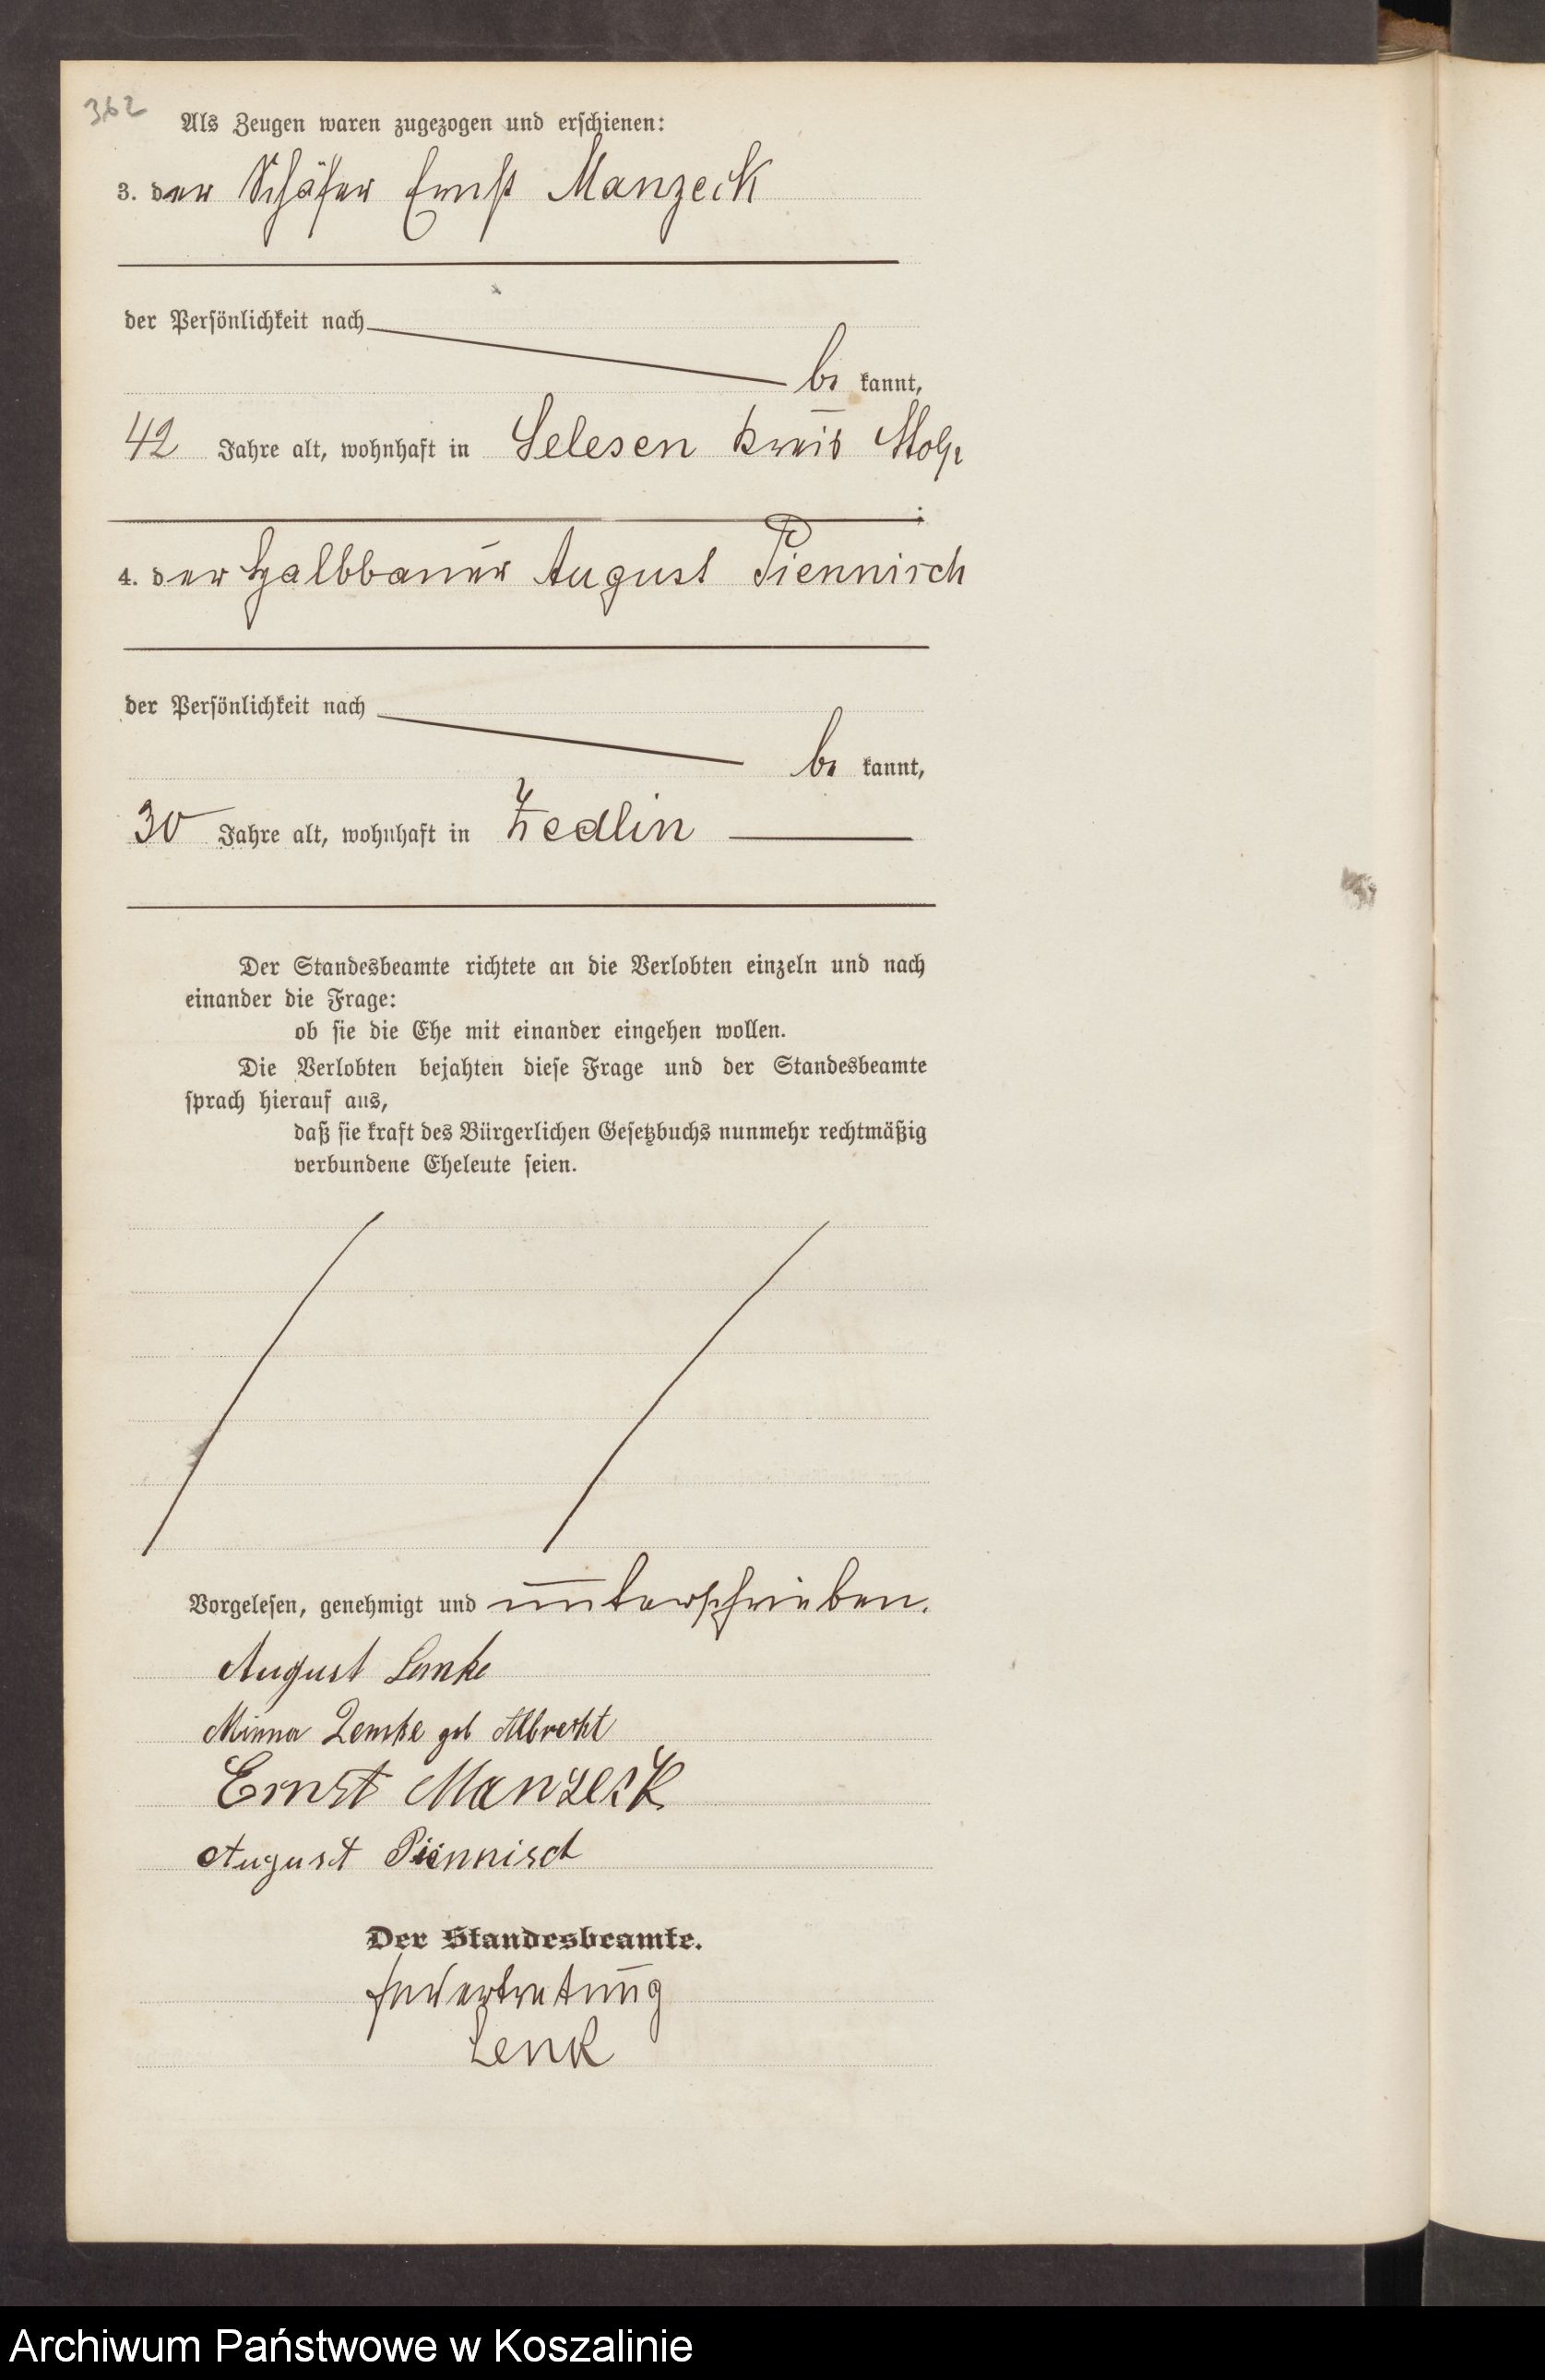 362
Als Zeugen waren zugezogen und erschienen:
3. der Schäfer Ernst Manzeck
der Persönlichkeit nach
be kannt,
42 Jahre alt, wohnhaft in Selesen Kreis Stolp
;
4. der Halbbauer August Piennisch
der Persönlichkeit nach
be kannt,
30 Jahre alt, wohnhaft in Zedlin
Der Standesbeamte richtete an die Verlobten einzeln und nach
einander die Frage:
ob sie die Ehe mit einander eingehen wollen.
Die Verlobten bejahten diese Frage und der Standesbeamte
sprach hierauf aus,
daß sie kraft des Bürgerlichen Gesetzbuchs nunmehr rechtmäßig
verbundene Eheleute seien.
Vorgelesen, genehmigt und unterschrieben.
August Lemke
Minna Lemke geb Albrecht
Ernst Manzeck
August Piennisch
Der Standesbeamte.
In Vertretung
Lenk
Archiwum Państwowe w Koszalinie